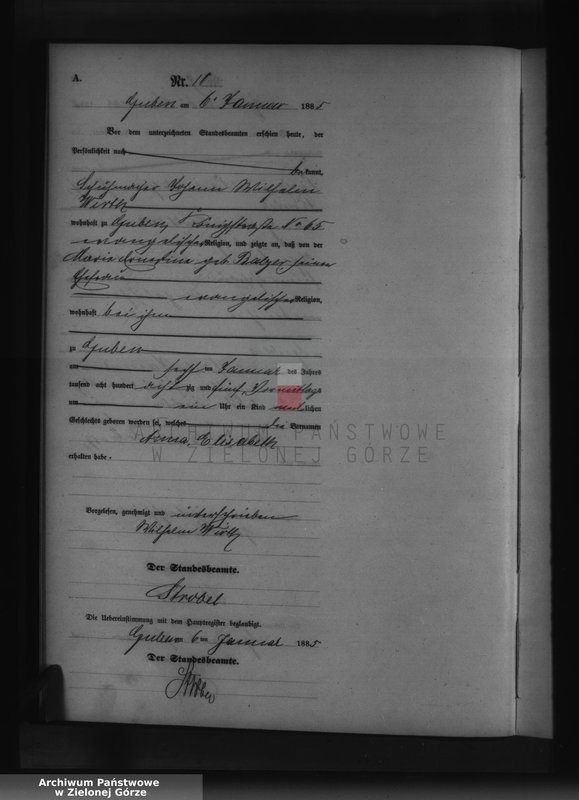 A.
Nr. 18
Guben am 6. Januar 1885
Vor dem unterzeichneten Standesbeamten erschien heute, der
Persönlichkeit nach
be kannt,
Schuhmacher Johann Wilhelm
Wirth
wohnhaft zu Guben, No 65
evangelischer Religion, und zeigte an, daß von der
Maria geb. Balzer seiner
Ehefrau
evangelischer Religion,
wohnhaft bei ihm
zu Guben
am sechs ten Januar des Jahres
tausend acht hundert acht zig und fünf, Vormittags
um ein Uhr ein Kind weib lichen
Geschlechts geboren worden sei, welches die Vornamen
Anna Elisabeth
erhalten habe.
Vorgelesen, genehmigt und unterschrieben
Wilhelm Wirth
Der Standesbeamte.
Strobel
Die Uebereinstimmung mit dem Hauptregister beglaubigt.
Guben am 6 ten Januar 1885
Der Standesbeamte.
Strobel
ARCHIWUM PAŃSTWOWE
W ZIELONEJ GÓRZE
Archiwum Państwowe
w Zielonej Górze